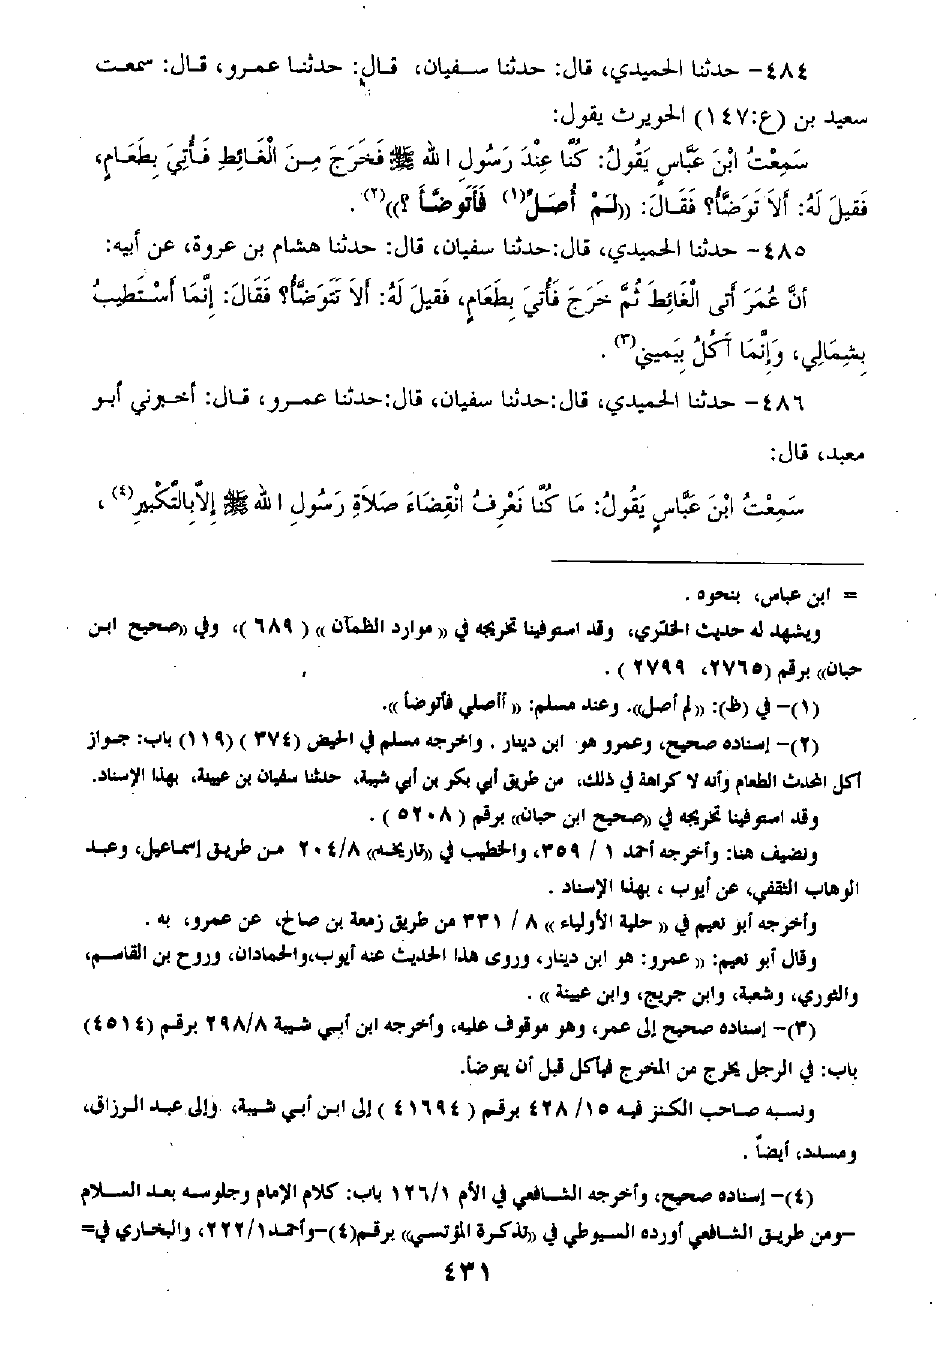 ٤٨٤- حدثنا الحميدي، قال: حدثنا سفيان، قال: حدثنا عمرو، قال: سمعت
سعيد بن (ع:١٤٧) الحويرث يقول:
سَمِعْتُ ابْنَ عَبَّاسٍ يَقُولُ: كُنَّا عِنْدَ رَسُولِ الله ﷺ فَخَرَجَ مِنَ الْغَائِطِ فَأُتِيَ بِطَعَامٍ،
فَقِيلَ لَهُ: أَلاَ تَوَضَّأُ؟ فَقَالَ: ((لَمْ أُصَلِّ(١) فَأَتَوَضَّأَ ؟))(٢) .
٤٨٥- حدثنا الحميدي، قال:حدثنا سفيان، قال: حدثنا هشام بن عروة، عن أبيه:
أَنَّ عُمَرَ أَتى الْغَائِطَ ثُمَّ خَرَجَ فَأُتِيَ بِطَعَامٍ، فَقِيلَ لَهُ: أَلاَ تَتَوَضَّأُ؟ فَقَالَ: إِنَّمَا أَسْتَطِيبُ
بِشِمَالِي، وَإِنَّمَا آكُلُ بِيَمِينِي(٣) .
٤٨٦- حدثنا الحميدي، قال:حدثنا سفيان، قال:حدثنا عمرو، قال: أخبرني أبو
معبد، قال:
سَمِعْتُ ابْنَ عَبَّاسٍ يَقُولُ: مَا كُنَّا نَعْرِفُ انْقِضَاءَ صَلاَةِ رَسُولِ الله ﷺ إِلاَّبِالتَّكْبِيرِ(٤) ،
= ابن عباس، بنحوه .
ويشهد له حديث الخدري، وقد استوفينا تخريجه في (( موارد الظمآن )) ( ٦٨٩ )، وفي ((صحيح ابن
حبان)) برقم (٢٧٦٥، ٢٧٩٩ ) .
(١)- في (ظ): ((لم أصل)). وعند مسلم: (( أأصلي فأتوضأ )).
(٢)- إسناده صحيح، وعمرو هو ابن دينار . وأخرجه مسلم في الحيض (٣٧٤ ) (١١٩) باب: جواز
أكل المحدث الطعام وأنه لا كراهة في ذلك، من طريق أبي بكر بن أبي شيبة، حدثنا سفيان بن عيينة، بهذا الإسناد.
وقد استوفينا تخريجه في ((صحيح ابن حبان)) برقم ( ٥٢٠٨ ) .
ونضيف هنا: وأخرجه أحمد ١ / ٣٥٩، والخطيب في ((تاريخه)) ٢٠٤/٨ من طريق إسماعيل، وعبد
الوهاب الثقفي، عن أيوب ، بهذا الإسناد .
وأخرجه أبو نعيم في (( حلية الأولياء )) ٨ / ٣٣١ من طريق زمعة بن صالح، عن عمرو، به .
وقال أبو نعيم: (( عمرو: هو ابن دينار، وروى هذا الحديث عنه أيوب،والحمادان، وروح بن القاسم،
والثوري، وشعبة، وابن جريج، وابن عيينة )) .
(٣)- إسناده صحيح إلى عمر، وهو موقوف عليه، وأخرجه ابن أبي شيبة ٢٩٨/٨ برقم (٤٥١٤)
باب: في الرجل يخرج من المخرج فيأكل قبل أن يتوضأ.
ونسبه صاحب الكنز فيه ١٥/ ٤٢٨ برقم ( ٤١٦٩٤ ) إلى ابن أبي شيبة، وإلى عبد الرزاق،
ومسدد، أيضاً .
(٤)- إسناده صحيح، وأخرجه الشافعي في الأم ١٢٦/١ باب: كلام الإمام وجلوسه بعد السلام
-ومن طريق الشافعي أورده السيوطي في ((تذكرة المؤتسي)) برقم(٤)-وأحمد٢٢٢/١، والبخاري في=
٤٣١